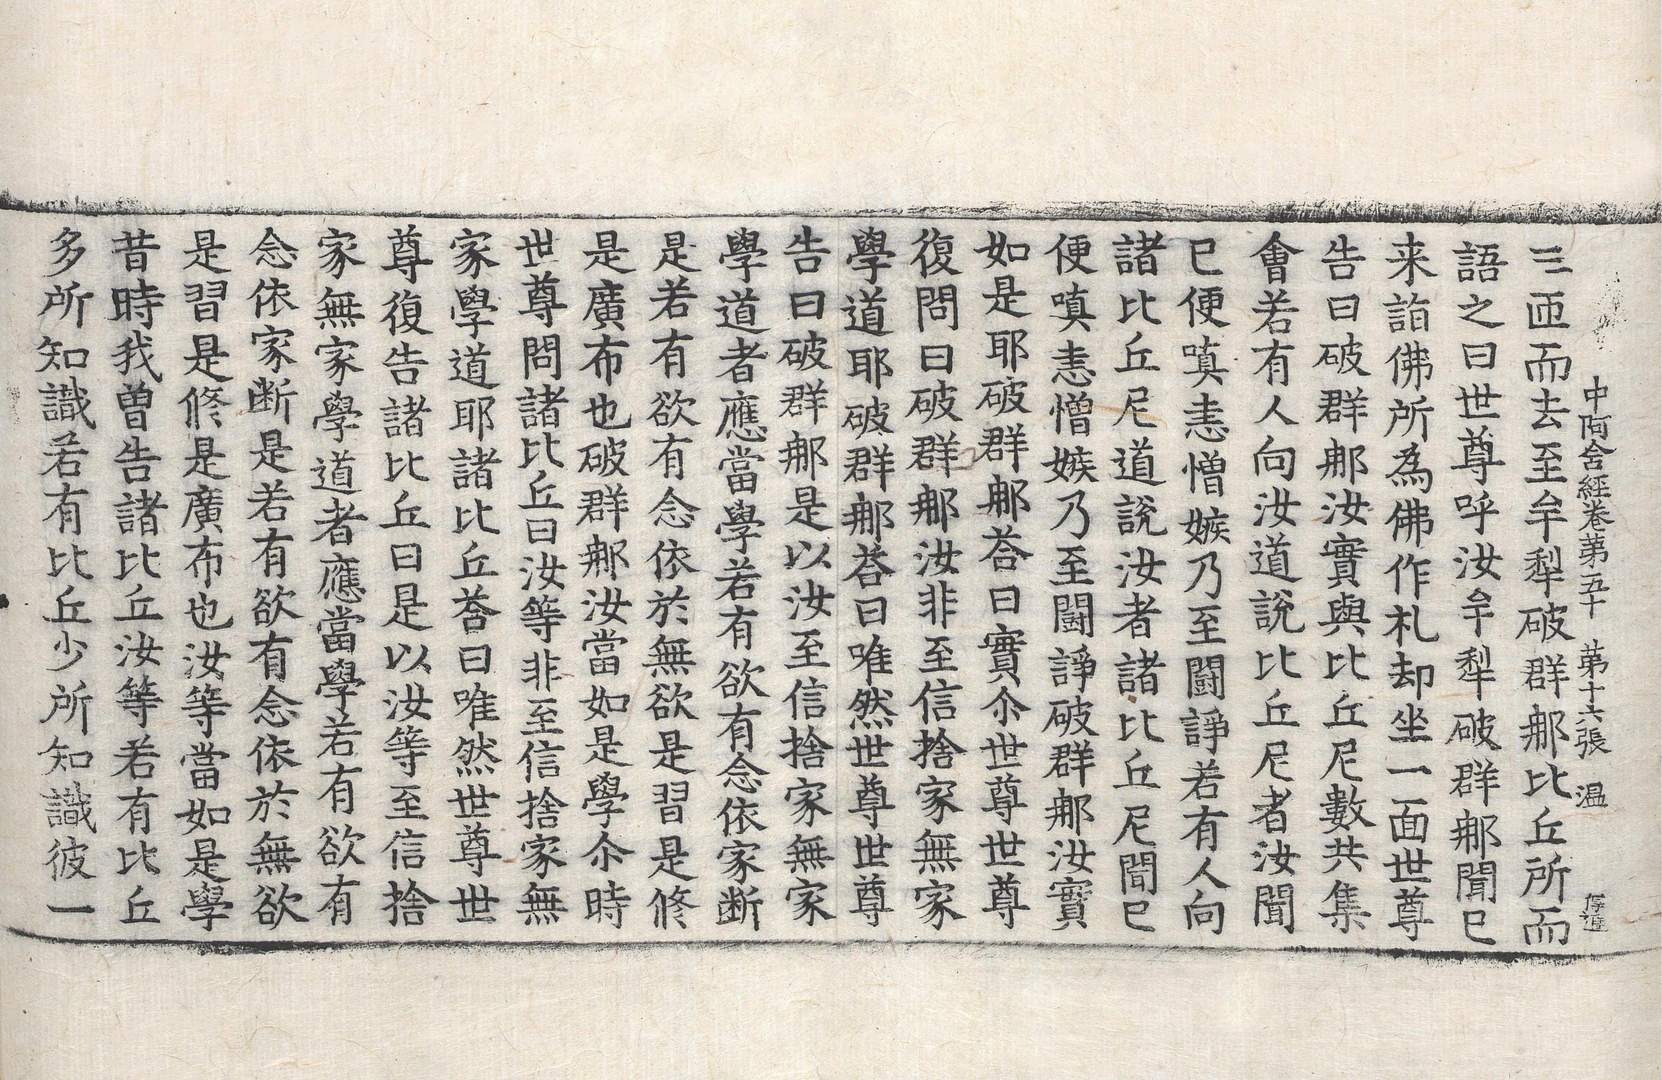 中阿含經卷第五十　第十六張　温
三匝而去至牟犁破群那比丘所而
語之曰世尊呼汝牟犁破群那聞已
来詣佛所為佛作礼却坐一面世尊
告曰破群那汝實與比丘尼數共集
會若有人向汝道說比丘尼者汝聞
已便嗔恚憎嫉乃至鬪諍若有人向
諸比丘尼道說汝者諸比丘尼聞已
便嗔恚憎嫉乃至鬪諍破群那汝實
如是耶破群那荅曰實尒世尊世尊
復問曰破群那汝非至信捨家無家
學道耶破群那荅曰唯然世尊世尊
告曰破群那是以汝至信捨家無家
學道者應當學若有欲有念依家断
是若有欲有念依於無欲是習是修
是廣布也破群那汝當如是學尒時
世尊問諸比丘曰汝等非至信捨家無
家學道耶諸比丘荅曰唯然世尊世
尊復告諸比丘曰是以汝等至信捨
家無家學道者應當學若有欲有
念依家断是若有欲有念依於無欲
是習是修是廣布也汝等當如是學
昔時我曾告諸比丘汝等若有比丘
多所知識若有比丘少所知識彼一